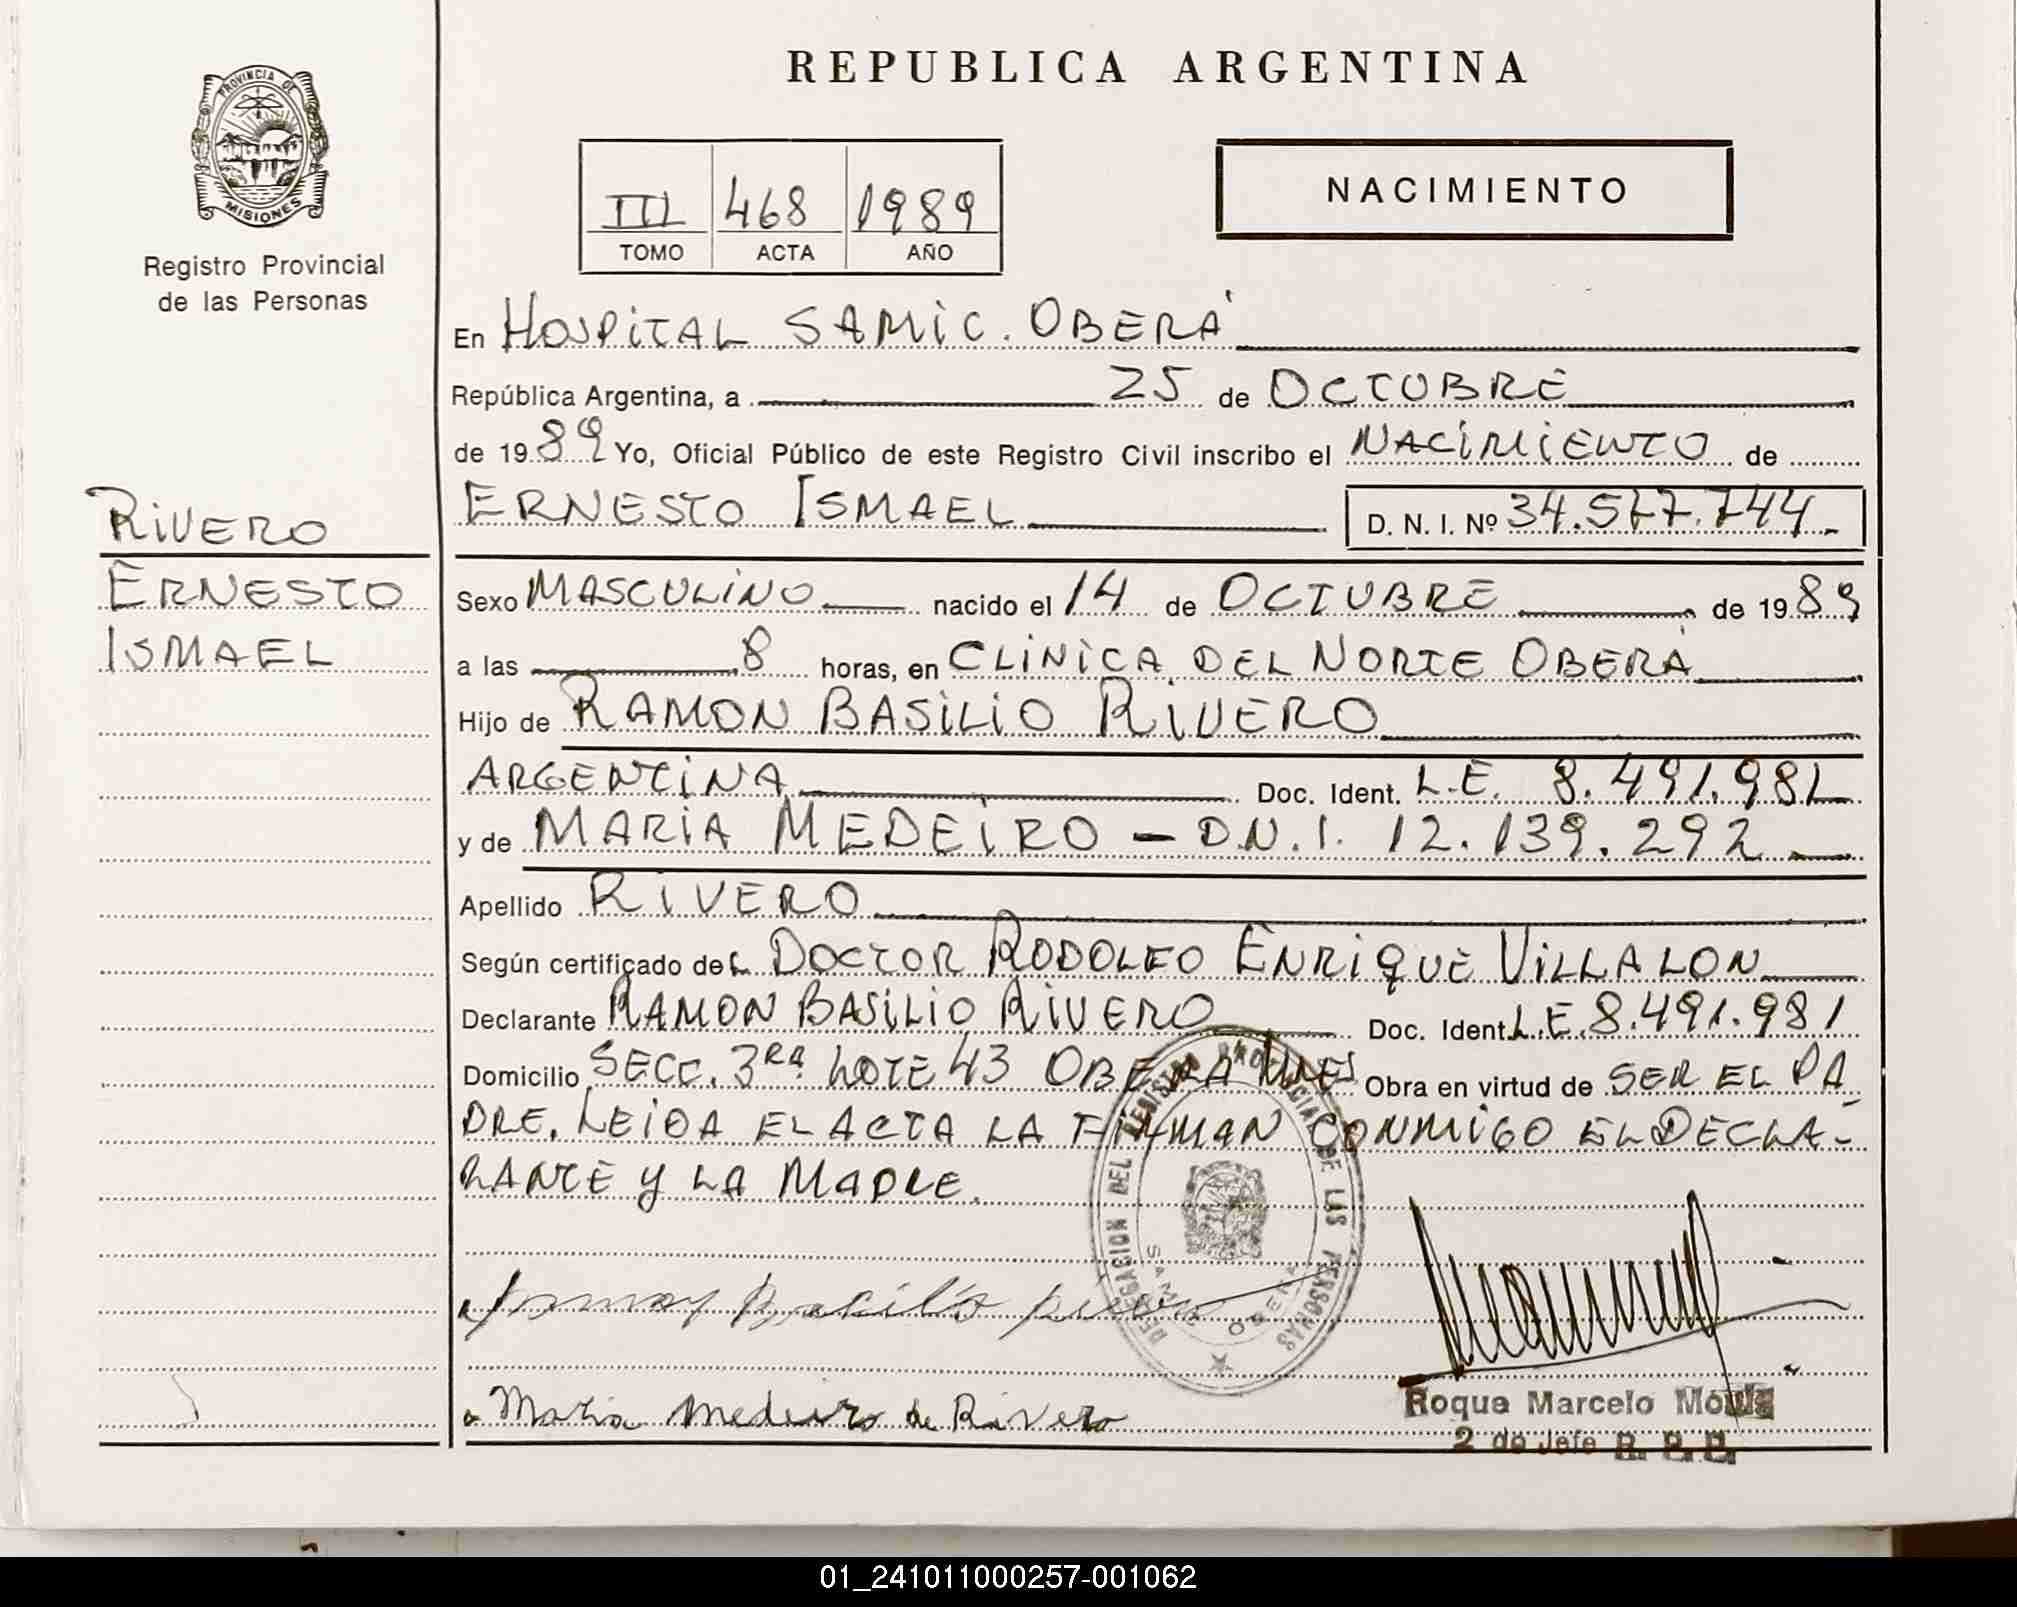 REPUBLICA ARGENTINA
PROVINCIA DE
MISIONES
Registro Provincial
de las Personas
III 468 1989
TOMO ACTA AÑO
NACIMIENTO
En HOSPITAL SAMIC. OBERÁ
República Argentina, a 25 de OCTUBRE
de 1989 Yo, Oficial Público de este Registro Civil inscribo el NACIMIENTO de
ERNESTO ISMAEL D. N. I. Nº 34.577.744.-
RIVERO
ERNESTO
ISMAEL
Sexo MASCULINO nacido el 14 de OCTUBRE de 1989
a las 8 horas, en CLINICA DEL NORTE OBERÁ
Hijo de RAMON BASILIO RIVERO
ARGENTINA Doc. Ident. L.E. 8.491.981
y de MARIA MEDEIRO - D.N.I. 12.139.292
Apellido RIVERO
Según certificado del DOCTOR RODOLFO ENRIQUE VILLALON
Declarante RAMON BASILIO RIVERO Doc. Ident. L.E. 8.491.981
Domicilio SECC. 3RA LOTE 43 OBERA MNES Obra en virtud de SER EL PA
DRE. LEIDA EL ACTA LA FIRMAN CONMIGO EL DECLA-
RANTE Y LA MADRE.
DELEGACION DEL REGISTRO PROVINCIAL DE LAS PERSONAS
SAMIC OBERA
Maria Medeiro de Rivero
Roque Marcelo
2 do Jefe R. P. P.
01_241011000257-001062